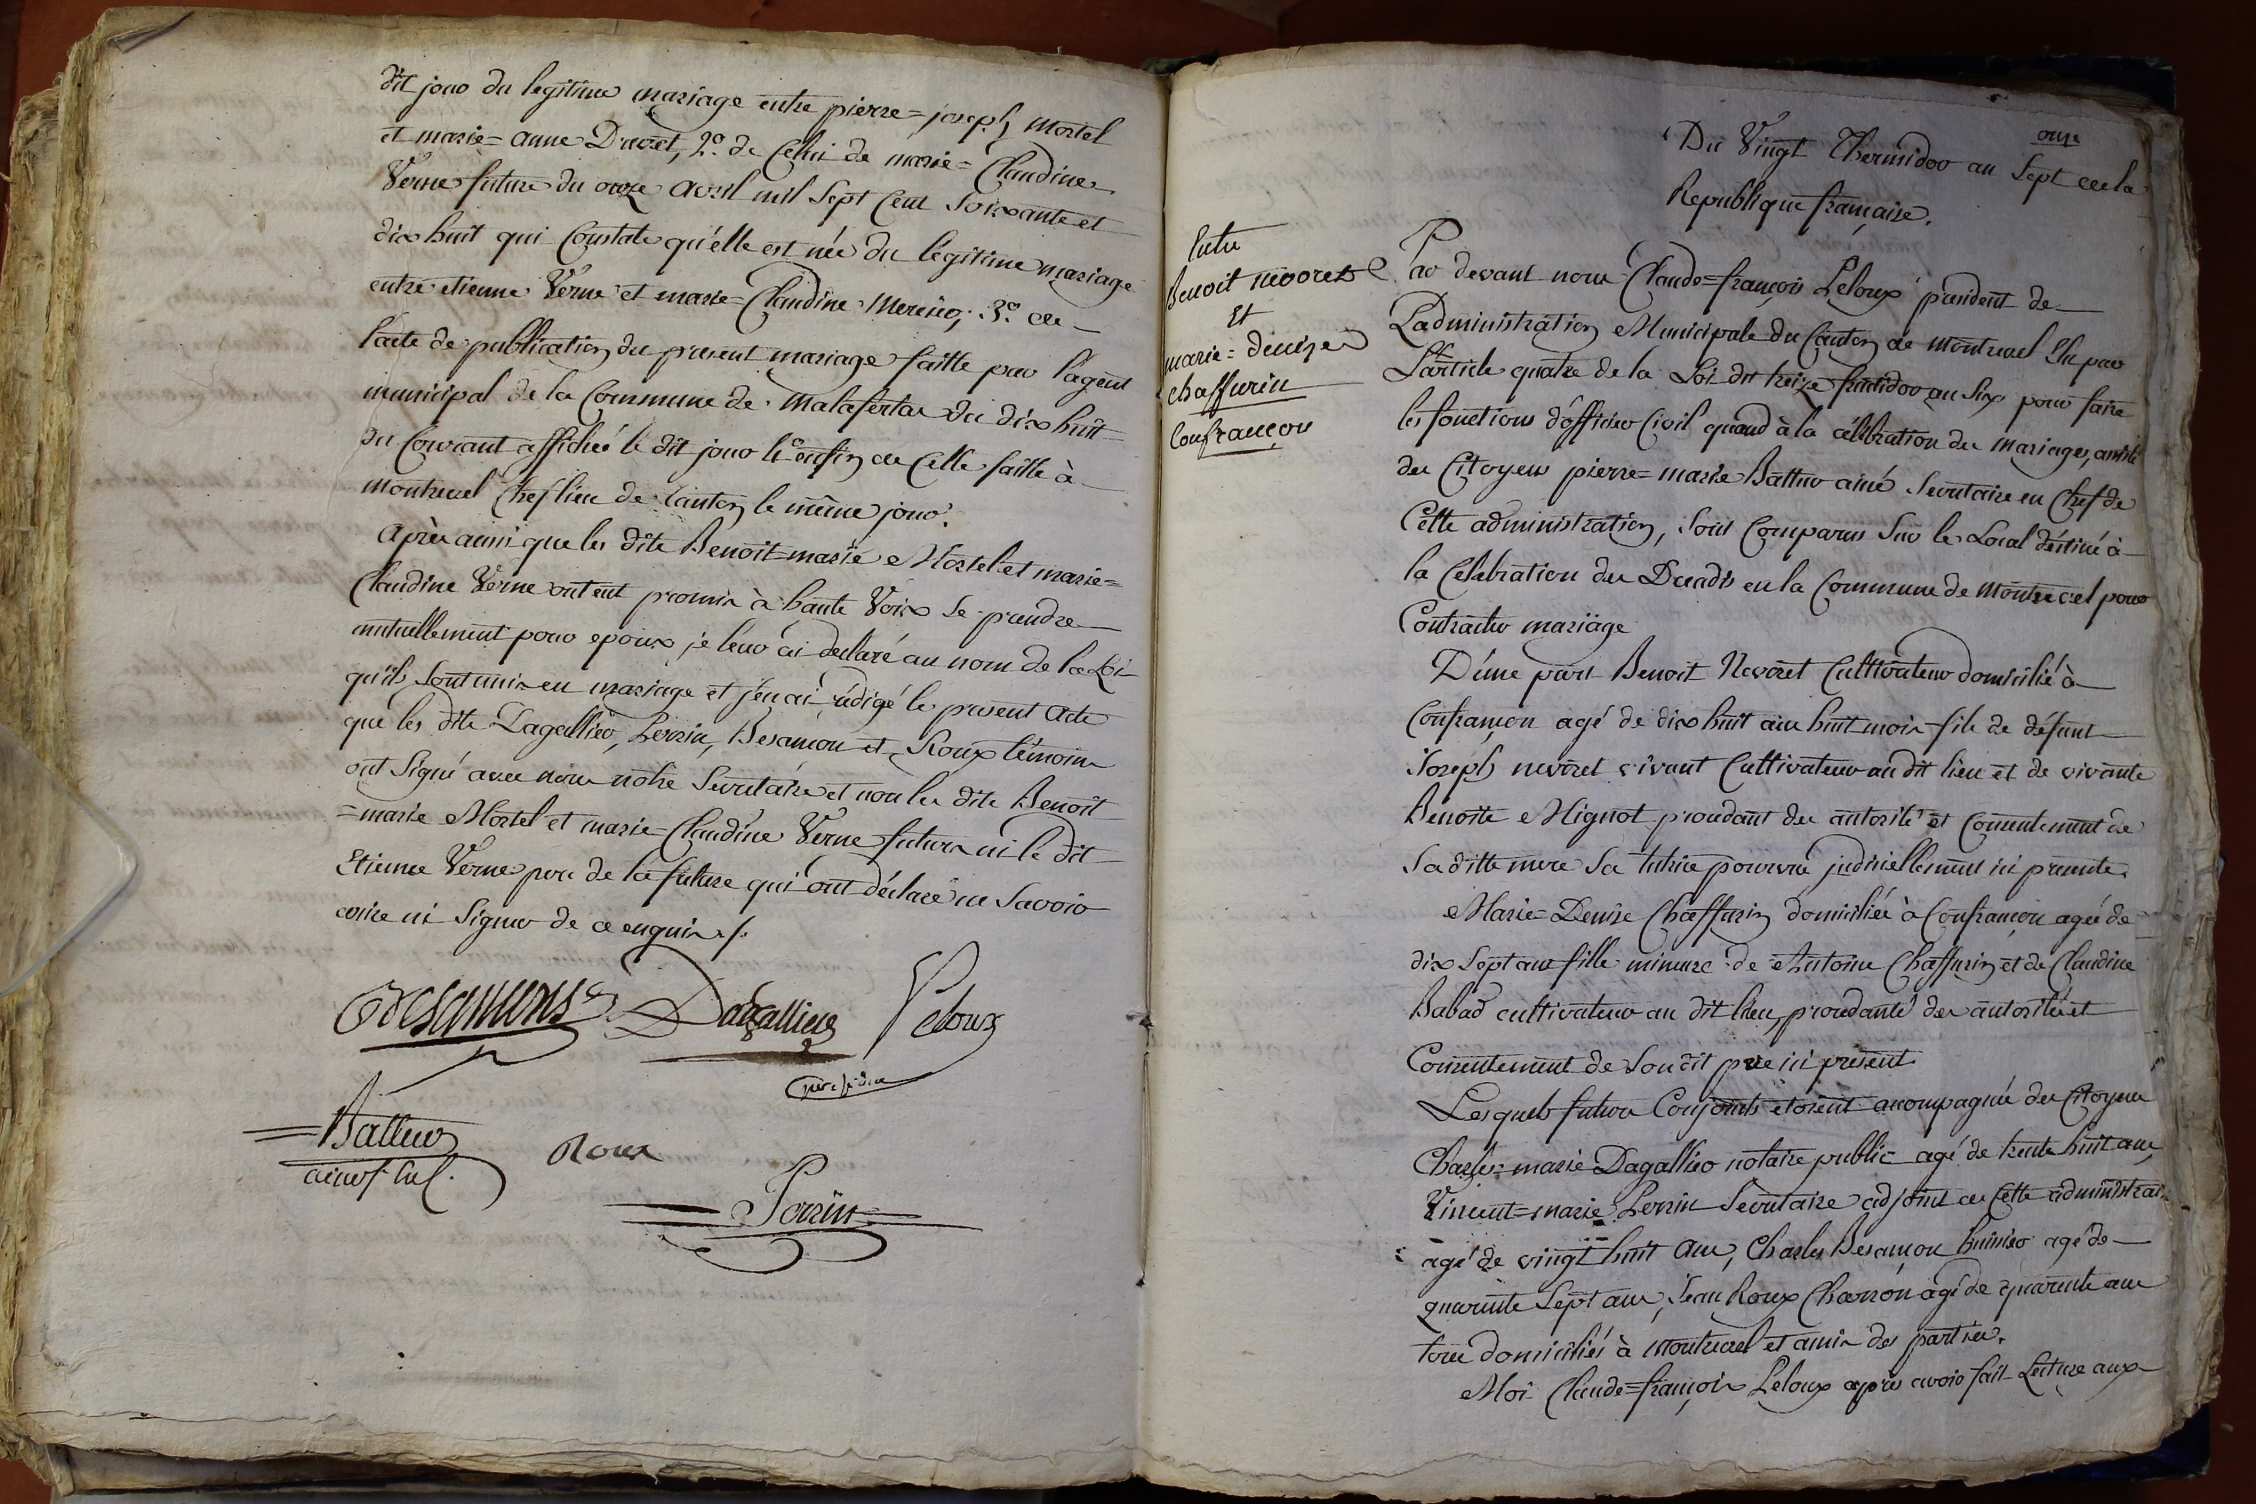 dit jour du legitime mariage entre pierre=joseph Mortel
et marie=anne Duvret, 2.º de Celui de marie=Claudine
Verne future du onze avril mil Sept Cent Soixante et
dix huit qui Constate qu'elle est née du légitime mariage
entre etienne Verne et marie=Claudine Mercier; 3.º de
l'acte de publication du present mariage faitte par l'agent
municipal de la Commune de Malafertaz du dix huit
du Courant affichée le dit jour 4.º enfin de Celle faitte à
montrevel Chef lieu de Canton le même jour.
Après aussi que les dits Benoit=marie Mortel et marie=
Claudine Verne ont eut promis à haute Voix Se prendre
mutuellement pour epoux je leur ai déclaré au nom de la Loi
qu'ils sont unis en mariage et j'en ai rédigé le present acte
que les dits Dagallier, Perrin, Besançon et Roux témoins
ont Signé avec nous notre Secretaire et non les dits Benoit
=marie Mortel et marie=Claudine Verne futurs ni le dit
Etienne Verne pere de la future qui ont déclaré ne Savoir
ecrire ni Signer de ce enquis ./.
Besancons Dagallier Peloux
president
Battur
ainé S. en C. Roux
Perrin
onze
Du Vingt Thermidor an Sept de la
Republique française.
Entre
Benoit nevoret
Et
marie=denize
Chaffurin
Confrançon
Par devant nous Claude=françois Peloux president de
L'administration Municipale du Canton de Montrevel Elu par
L'article quatre de la Loi du treize fructidor an Six pour faire
les fonctions d'officier Civil quand à la célébration des mariages, assisté
du Citoyen pierre=marie Battur ainé Secretaire en Chef de
Cette administration, Sont Comparus Sur le Local déstiné à
la Celebration des Decadis en la Commune de Montrevel pour
Contracter mariage
D'une part Benoit Nevoret Cultivateur domicilié à
Confrançon agé de dix huit ans huit mois fils de défunt
Joseph nevoret vivant Cultivateur au dit lieu et de vivante
Benoite Mignot procédant des autorité et Consentement de
Sa ditte mere Sa tutrice pourvue judiciellement ici presente.
Marie=Denise Chaffurin domiciliée à Confrançon agée de
dix Sept ans fille mineure de Antoine Chaffurin et de Claudine
Babad cultivateur au dit lieu, procédante des autorité et
Consentement de Son dit pere ici present
Lesquels futurs Conjoints étoient acompagnés des Citoyens
Charles=marie Dagallier notaire public agé de trente huit ans,
Vincent=marie Perrin Secretaire adjoint de Cette administrat.ⁿ
agé de vingt huit ans, Charles Besançon huissier agé de
quarante Sept ans, Jean Roux Charron agé de quarante ans
tous domiciliés à Montrevel et amis des parties.
Moi Claude=françois Peloux après avoir fait Lecture aux